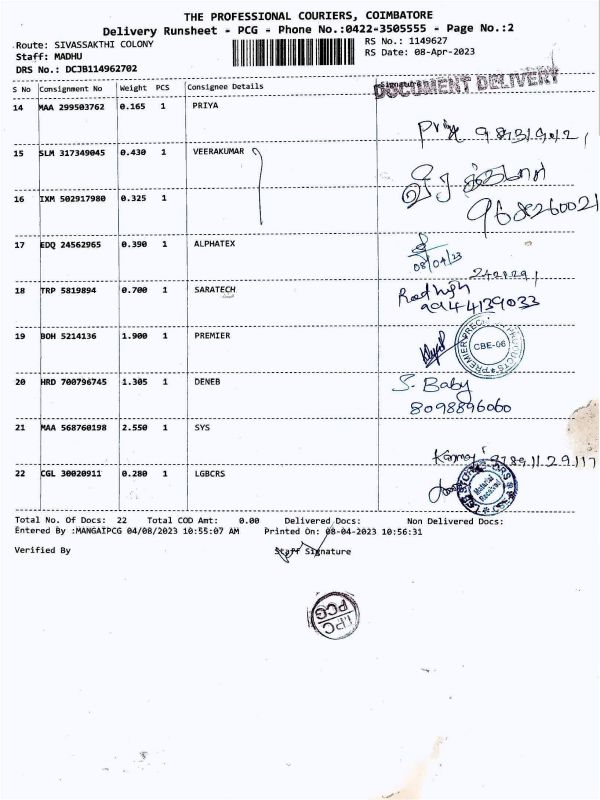 THE PROFESSIONAL COURIERS, COIMBATORE
Delivery Runsheet - PCG - Phone No.:0422-3505555 - Page No.:2
Route: SIVASSAKTHI COLONY
RS No.: 1149627
Staff: MADHU
RS Date: 08-Apr-2023
DRS No.: DCJB114962702
S No Consignment No Weight PCS Consignee Details Signature
DOCUMENT DELIVERY
14 MAA 299503762 0.165 1 PRIYA
15 SLM 317349045 0.430 1 VEERAKUMAR
16 IXM 502917980 0.325 1
9688260021
17 EDQ 24562965 0.390 1 ALPHATEX
08/04/23
18 TRP 5819894 0.700 1 SARATECH
19 BOH 5214136 1.900 1 PREMIER
CBE-06
20 HRD 700796745 1.305 1 DENEB
S. Baby
8098896060
21 MAA 568760198 2.550 1 SYS
22 CGL 30020911 0.280 1 LGBCRS
Material Received
Total No. Of Docs: 22 Total COD Amt: 0.00 Delivered Docs: Non Delivered Docs:
Entered By :MANGAIPCG 04/08/2023 10:55:07 AM Printed On: 08-04-2023 10:56:31
Verified By Staff Signature
TPC
PCG